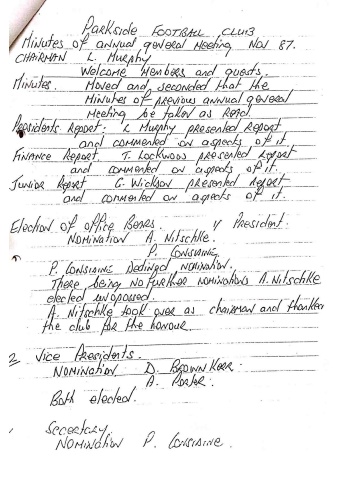 Parkside FOOTBALL CLUB
Minutes of annual general Meeting, Nov 87.
CHAIRMAN L. Murphy
Welcome Members and guests.
Minutes. Moved and seconded that the
Minutes of previous annual general
Meeting be taken as Read.
Presidents Report: L Murphy presented Report
and commented on aspects of it.
Finance Report. T. Lockwood presented report
and commented on aspects of it.
Junior Report G. Wickson presented Report
and commented on aspects of it.
Election of office Bears. President.
Nomination A. Nitschke.
P. Considine.
P. Considine Declined Nomination.
There being no further nominations A. Nitschke
elected unopposed.
A. Nitschke took over as chairman and thanked
the club for the honour.
2 Vice Presidents.
Nomination D. Brown Kerr.
A. Porter.
Both elected.
Secretary.
Nomination P. Considine.